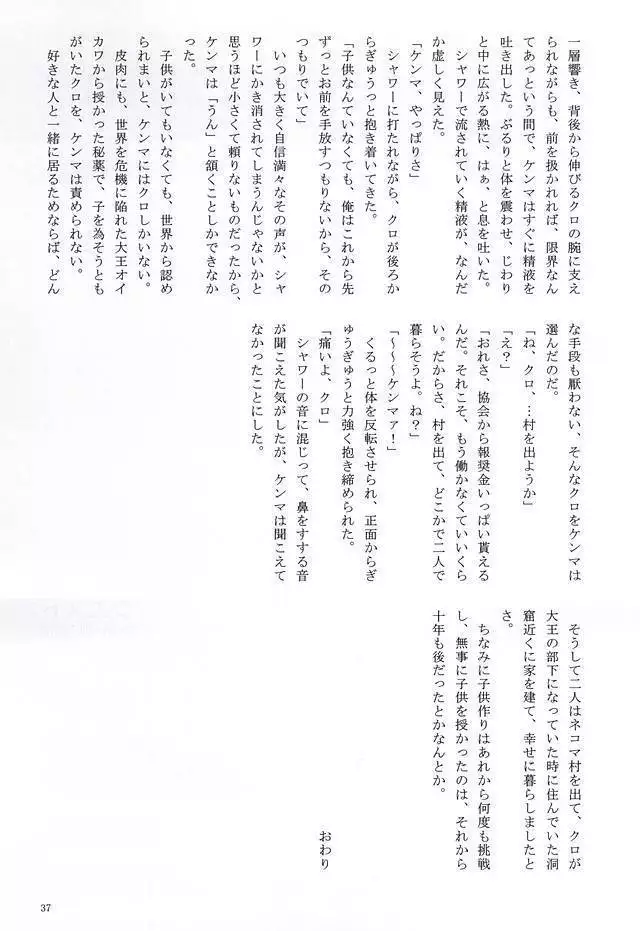 一層響き、背後から伸びるクロの腕に支え
られながらも、前を扱かれれば、限界なん
てあっという間で、ケンマはすぐに精液を
吐き出した。ぶるりと体を震わせ、じわり
と中に広がる熱に、はぁ、と息を吐いた。
　シャワーで流されていく精液が、なんだ
か虚しく見えた。
「ケンマ、やっぱりさ」
　シャワーに打たれながら、クロが後ろか
らぎゅうっと抱き着いてきた。
「子供なんていなくても、俺はこれから先
ずっとお前を手放すつもりないから、その
つもりでいて」
　いつも大きく自信満々なその声が、シャ
ワーにかき消されてしまうんじゃないかと
思うほど小さくて頼りないものだったから、
ケンマは「うん」と頷くことしかできなか
った。
　子供がいてもいなくても、世界から認め
られまいと、ケンマにはクロしかいない。
　皮肉にも、世界を危機に陥れた大王オイ
カワから授かった秘薬で、子を為そうとも
がいたクロを、ケンマは責められない。
　好きな人と一緒に居るためならば、どん
な手段も厭わない、そんなクロをケンマは
選んだのだ。
「ね、クロ、…村を出ようか」
「え？」
「おれさ、協会から報奨金いっぱい貰える
んだ。それこそ、もう働かなくていいくら
い。だからさ、村を出て、どこかで二人で
暮らそうよ。ね？」
「～～～ケンマァ！」
　くるっと体を反転させられ、正面からぎ
ゅうぎゅうと力強く抱き締められた。
「痛いよ、クロ」
　シャワーの音に混じって、鼻をすする音
が聞こえた気がしたが、ケンマは聞こえて
なかったことにした。
　そうして二人はネコマ村を出て、クロが
大王の部下になっていた時に住んでいた洞
窟近くに家を建て、幸せに暮らしましたと
さ。
　ちなみに子供作りはあれから何度も挑戦
し、無事に子供を授かったのは、それから
十年も後だったとかなんとか。
おわり
37